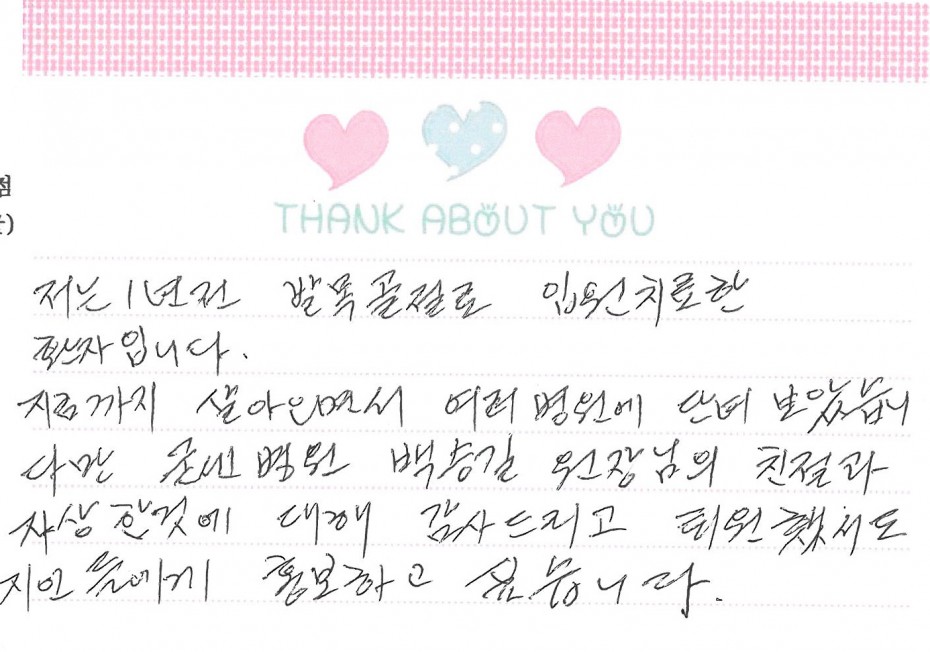 점
THANK ABOUT YOU
저는 1년전 발목골절로 입원치료한
환자입니다.
지금까지 살아오면서 여러 병원에 단녀 보았습니
다만 병원 백승길 원장님의 친절과
자상한것에 대해 감사드리고 퇴원했서도
지인들에게 홍보하고 싶습니다.